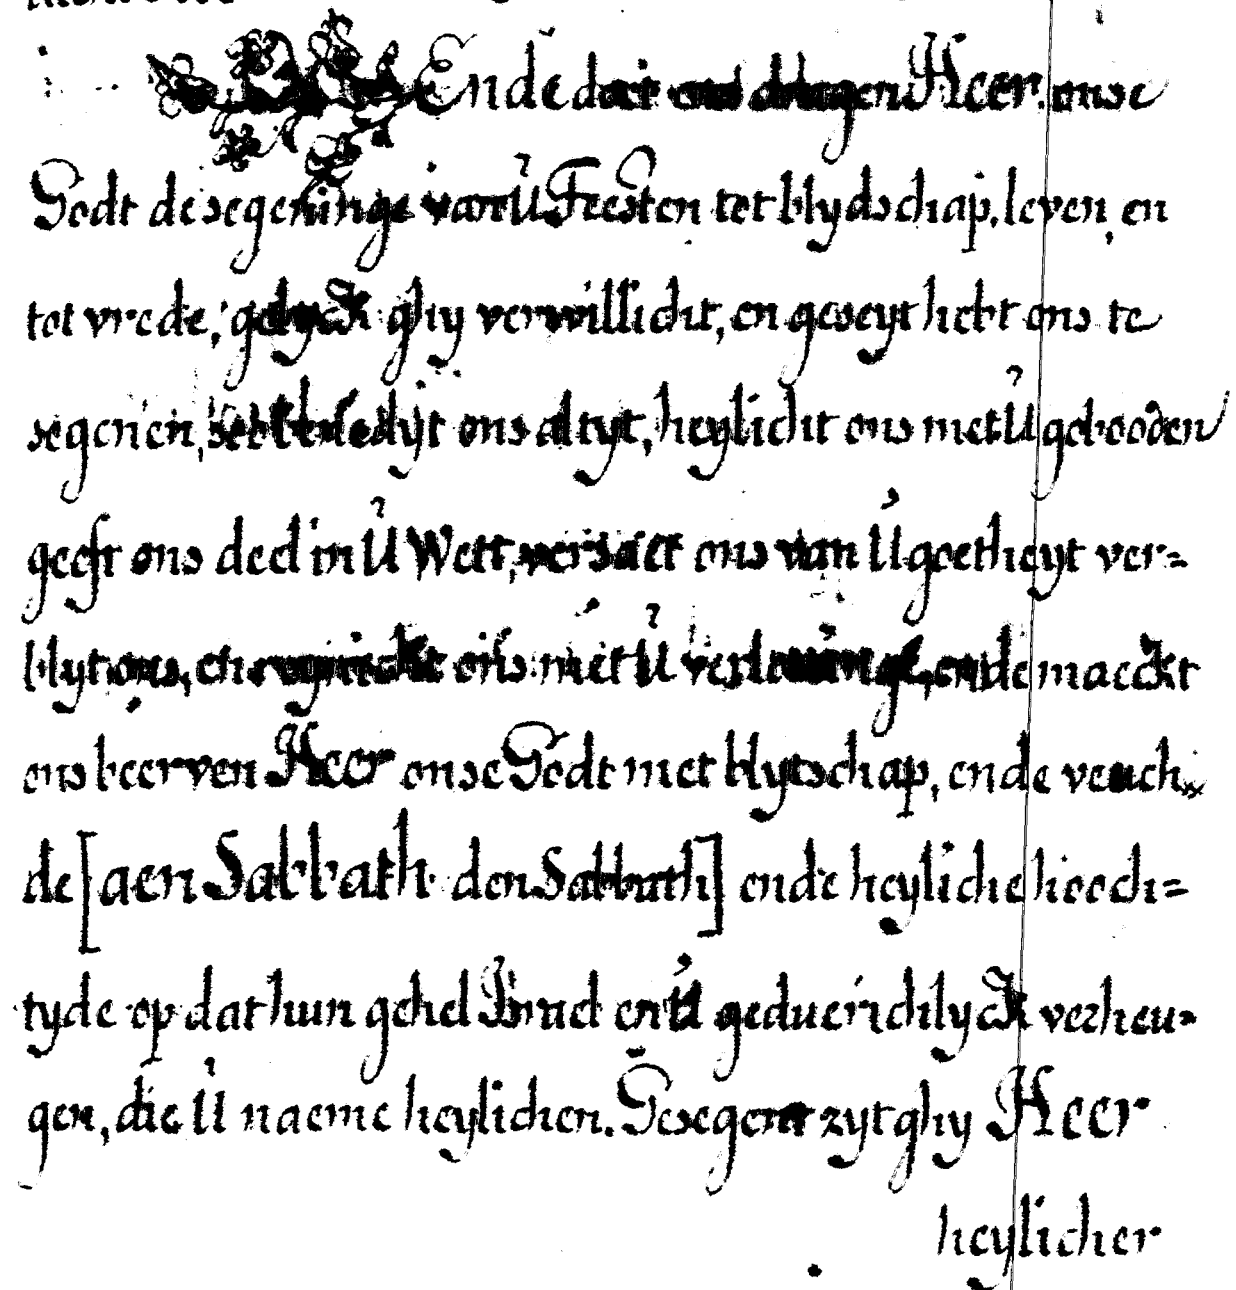 Ende doet ons dragen Heer onse
Godt de segeninge van U Feesten tot blydschap, leven, en
tot vrede, gelyck ghy verwillicht, en geseyt hebt ons te
segenen, ons altyt, heylicht ons met U gebooden
geeft ons deel in U Wett, versaet ons van U goetheyt ver=
blyt ons, en ons met U verlossinge, ende maeckt
ons beerven Heer onse Godt met blytschap, ende veuch
de [aen Sabbath den Sabbath] ende heyliche hooch=
tyde op dat hun gehel Israel en U geduerichlyck verheu=
gen, die U naeme heylichen. Gesegent zyt ghy Heer
heylicher